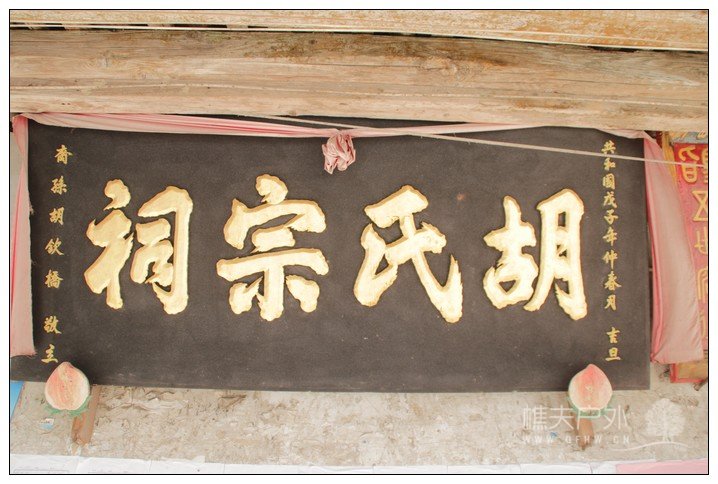 共和國戊子年仲春月 吉旦
胡氏宗祠
裔孫胡欽橋 敬立
樵夫户外
WWW.QFHW.CN